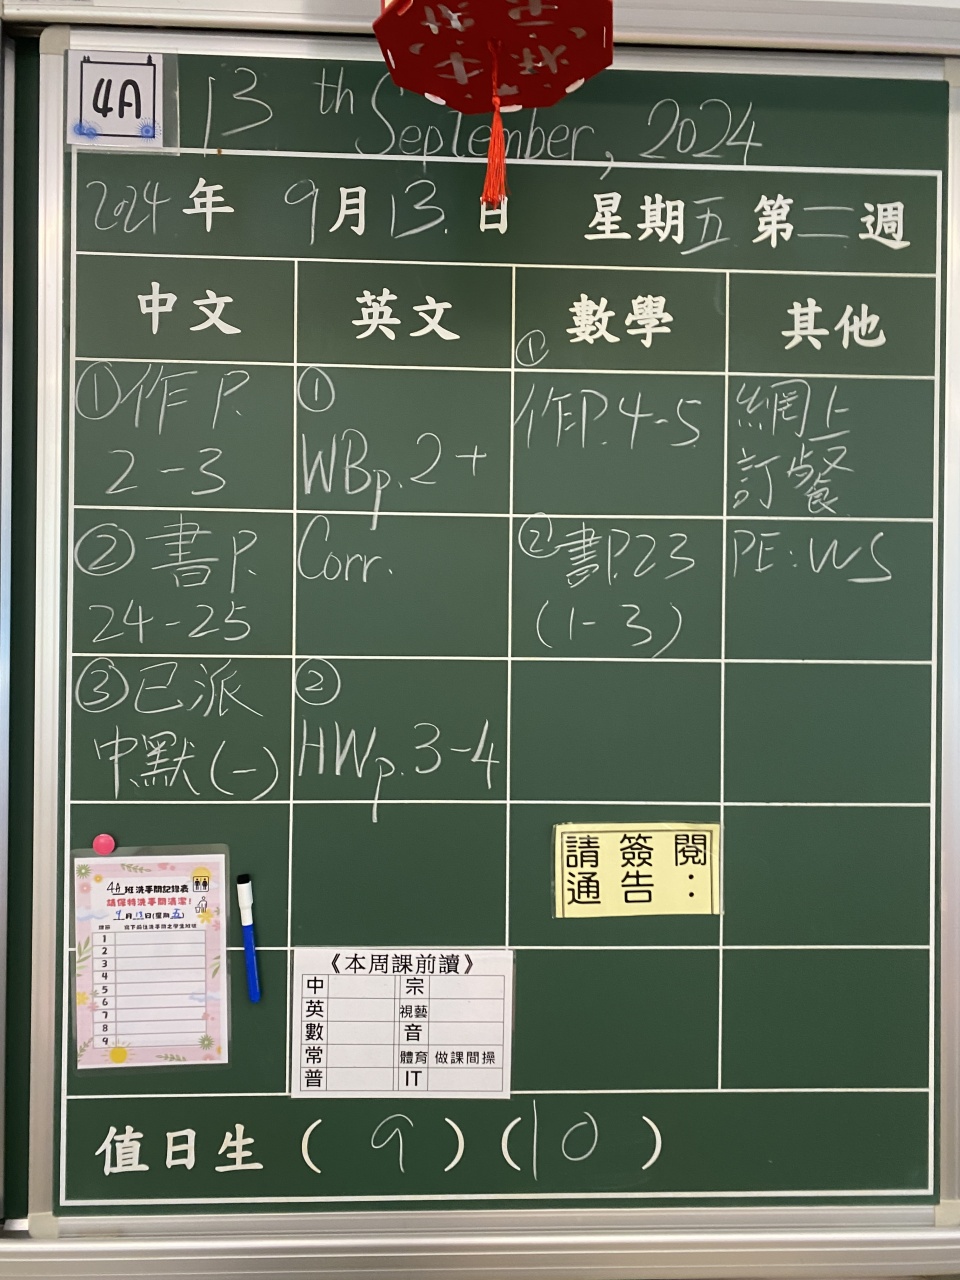 4A
13th September, 2024
2024年 9月13日 星期五 第二週
中文 英文 數學 其他
①作P.
2-3
②書P.
24-25
③已派
中默(一)
①
WBp.2+
Corr.
②
HWp.3-4
①
作P.4-5
②書P.23
(1-3)
網上
訂餐
PE:WS
請簽閱
通告：
4A班洗手間記錄表
請保持洗手間清潔!
9月13日(星期五)
1
2
3
4
5
6
7
8
9
《本周課前讀》
中 宗
英 視藝
數 音
常 體育 做課間操
普 IT
值日生(9)(10)